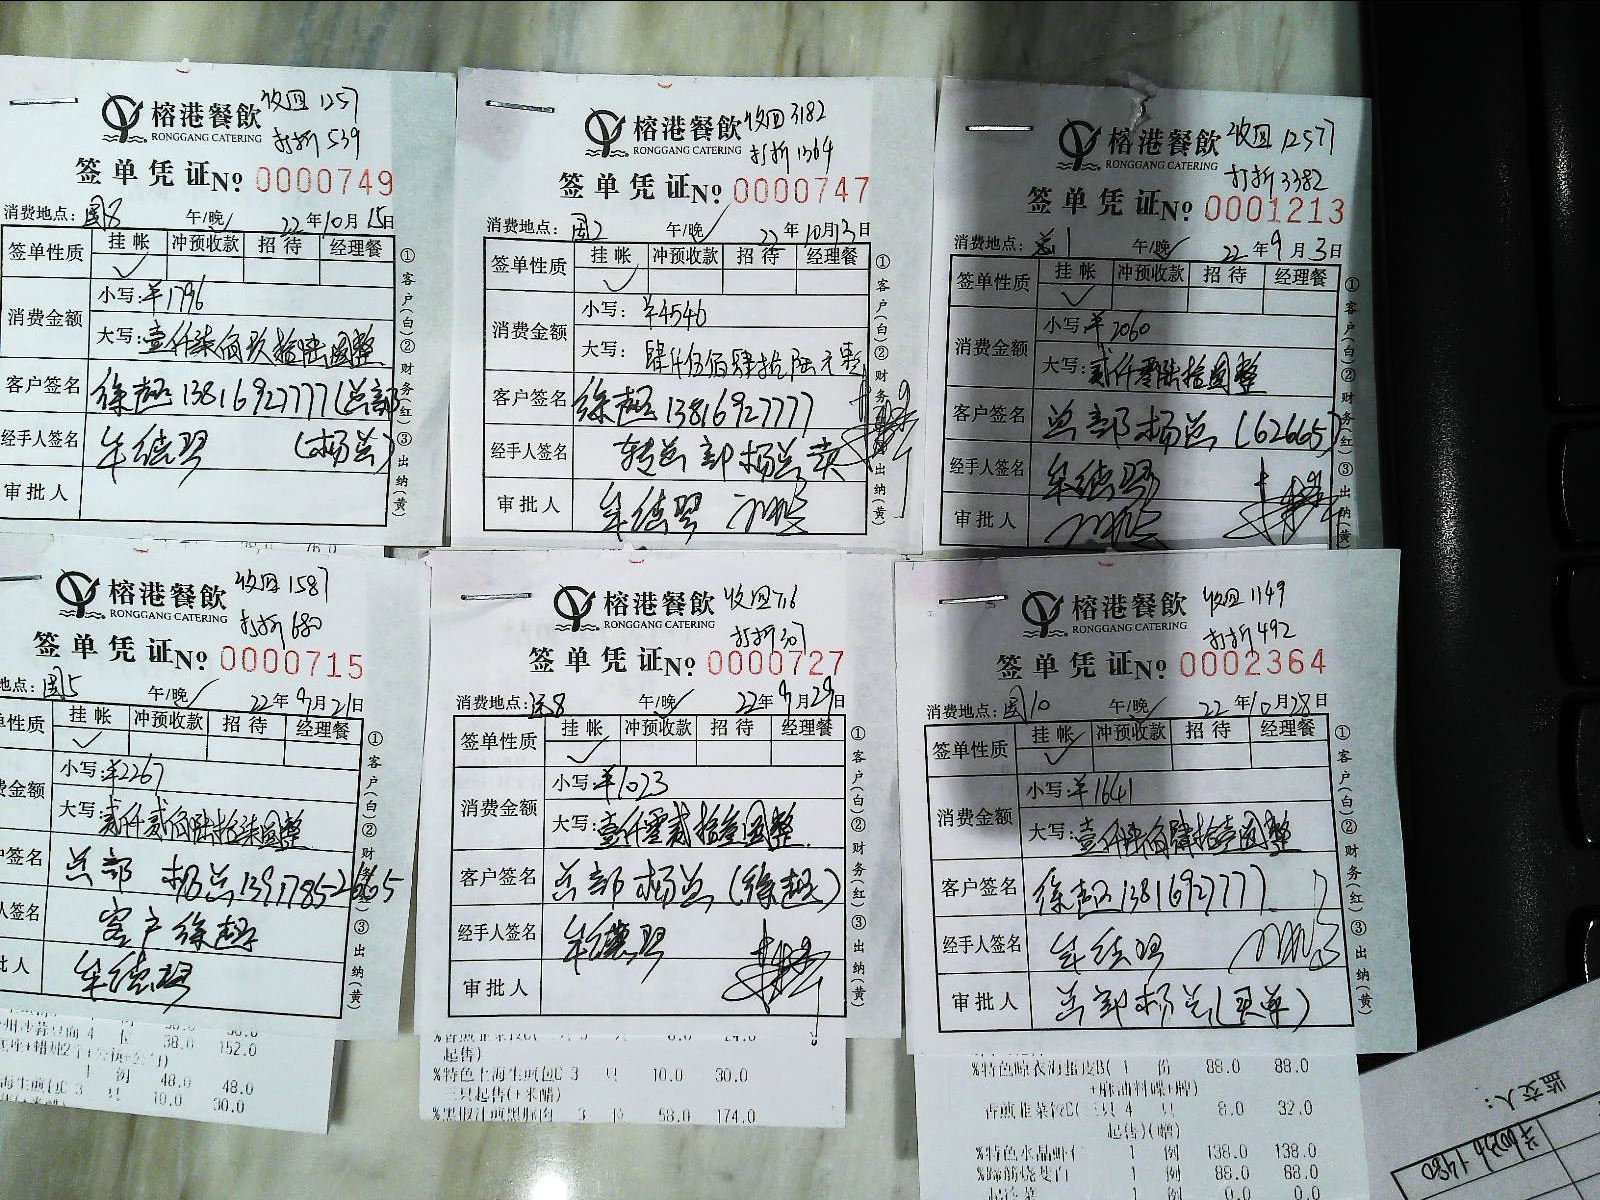 榕港餐飲 收回1257
RONGGANG CATERING 打折539
签单凭证 No 0000749
消费地点：国8 午/晚 22年10月15日
签单性质 挂帐 冲预收款 招待 经理餐
消费金额 小写：¥1796
大写：壹仟柒佰玖拾陆圆整
客户签名 徐超 13816927777(总部
经手人签名 牟德翠 (杨总)
审批人
①客户(白)②财务(红)③出纳(黄)
榕港餐飲 收回3182
RONGGANG CATERING 打折1364
签单凭证 No 0000747
消费地点：国2 午/晚 22年10月13日
签单性质 挂帐 冲预收款 招待 经理餐
消费金额 小写：¥4546
大写：肆仟伍佰肆拾陆元整
客户签名 徐超 13816927777
经手人签名 转总部杨总
审批人 牟德翠
①客户(白)②财务(红)③出纳(黄)
榕港餐飲 收回12577
RONGGANG CATERING 打折3382
签单凭证 No 0001213
消费地点： 1 午/晚 22年9月3日
签单性质 挂帐 冲预收款 招待 经理餐
消费金额 小写：¥2060
大写：贰仟零陆拾圆整
客户签名 总部杨总(62665)
经手人签名 牟德翠
审批人
①客户(白)②财务(红)③出纳(黄)
榕港餐飲 收回1587
RONGGANG CATERING 打折680
签单凭证 No 0000715
地点：国5 午/晚 22年9月21日
单性质 挂帐 冲预收款 招待 经理餐
费金额 小写：¥2267
大写：贰仟贰佰陆拾柒圆整
户签名 总部 杨总
人签名 客户徐超
批人 牟德翠
①客户(白)②财务(红)③出纳(黄)
4 位 38.0 152.0
1 例 48.0 48.0
海生煎包C 3 只 10.0 30.0
榕港餐飲 收回716
RONGGANG CATERING 打折307
签单凭证 No 0000727
消费地点： 8 午/晚 22年9月29日
签单性质 挂帐 冲预收款 招待 经理餐
消费金额 小写：¥1023
大写：壹仟零贰拾叁圆整
客户签名 总部杨总(徐超)
经手人签名 牟德翠
审批人
①客户(白)②财务(红)③出纳(黄)
起售)
%特色上海生煎包C 3 只 10.0 30.0
三只起售(+米醋)
%黑椒汁煎黑豚肉 3 位 58.0 174.0
榕港餐飲 收回1149
RONGGANG CATERING 打折492
签单凭证 No 0002364
消费地点：国10 午/晚 22年10月28日
签单性质 挂帐 冲预收款 招待 经理餐
消费金额 小写：¥1641
大写：壹仟陆佰肆拾壹圆整
客户签名 徐超 13816927777
经手人签名 牟德翠
审批人 总部杨总(买单)
①客户(白)②财务(红)③出纳(黄)
%特色晾衣海蜇皮B( 1 份 88.0 88.0
+麻油料碟+牌)
香煎韭菜饺C(三只 4 只 8.0 32.0
起售)(醋)
%特色水晶虾仁 1 例 138.0 138.0
%蹄筋烧茭白 1 例 88.0 88.0
1 例 0.0 0.0
监交人：